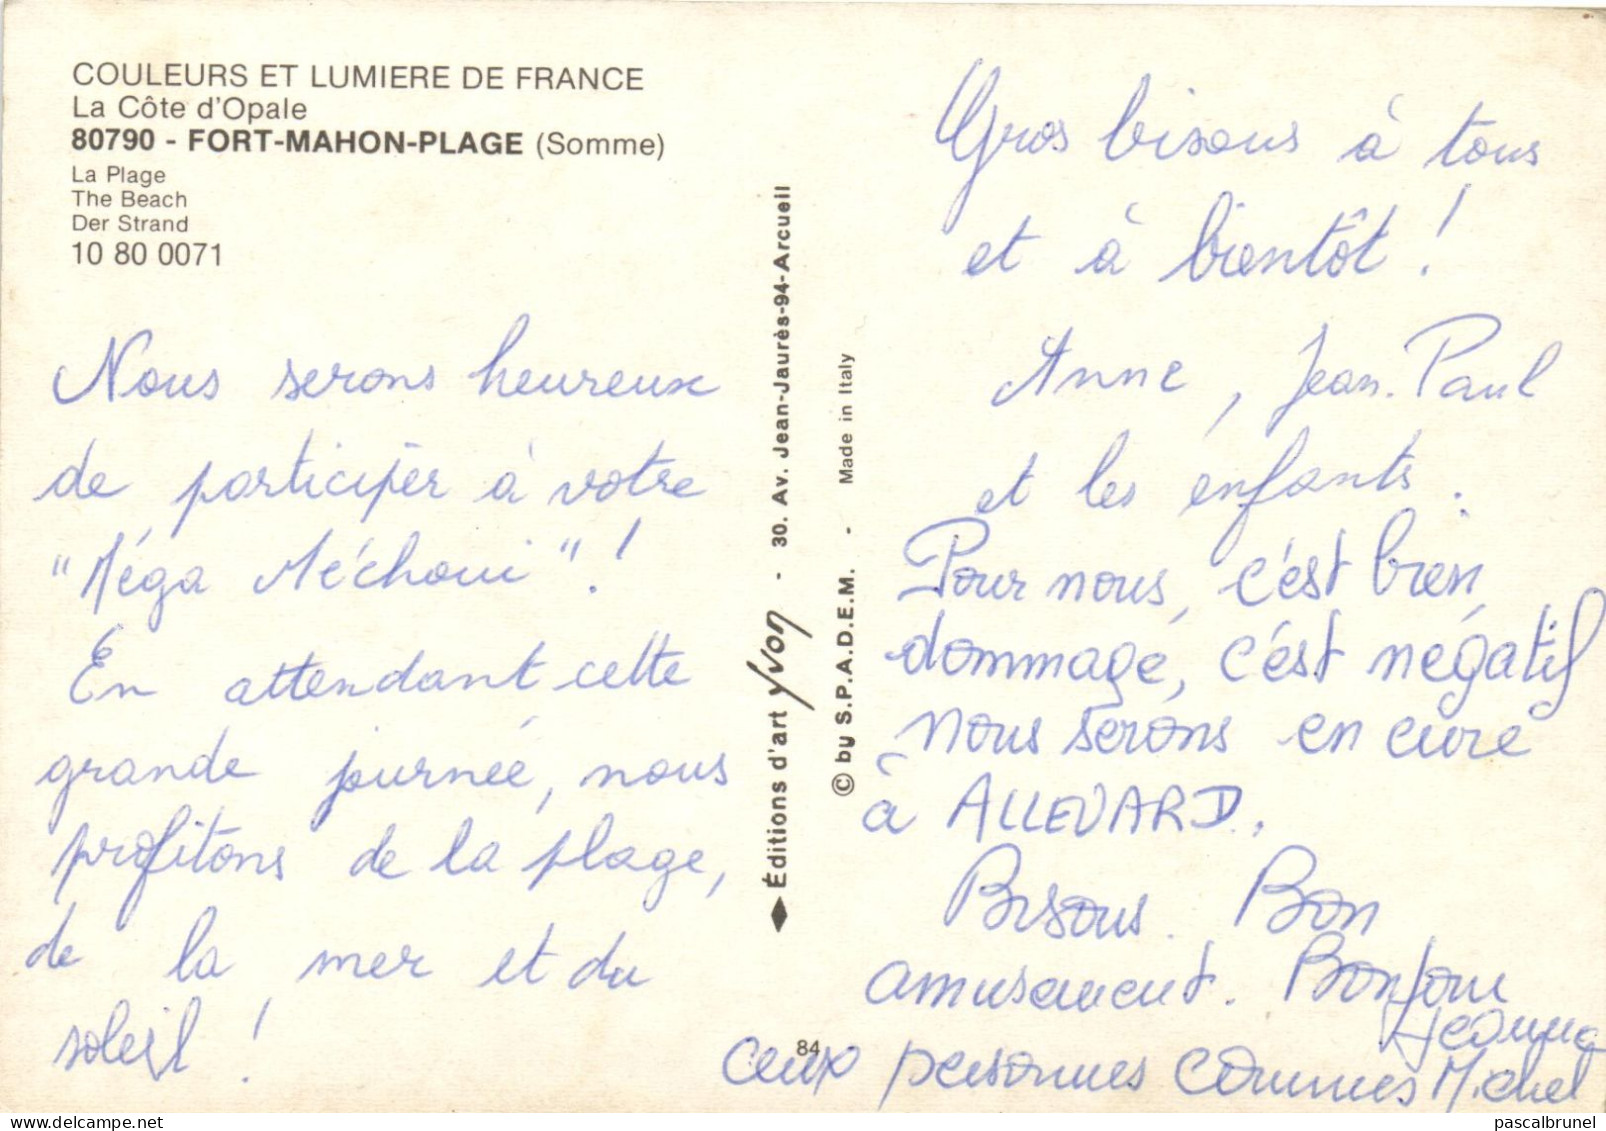 COULEURS ET LUMIERE DE FRANCE
La Côte d'Opale
80790 - FORT-MAHON-PLAGE (Somme)
La Plage
The Beach
Der Strand
10 80 0071
Nous serons heureux
de participer à votre
"Méga Méchoui"!
En attendant cette
grande journée, nous
profitons de la plage,
de la mer et du
soleil !
Éditions d'art Yvon - 30. Av. Jean-Jaurès-94-Arcueil
© by S.P.A.D.E.M. - Made in Italy
84
Gros bisous à tous
et à bientôt !
Anne, Jean-Paul
et les enfants.
Pour nous, c'est bien
dommage, c'est négatif
nous serons en cure
à ALLEVARD.
Bisous. Bon
amusement. Bonjour
ceux personnes connues
Jeannine
Michel
pascalbrunel